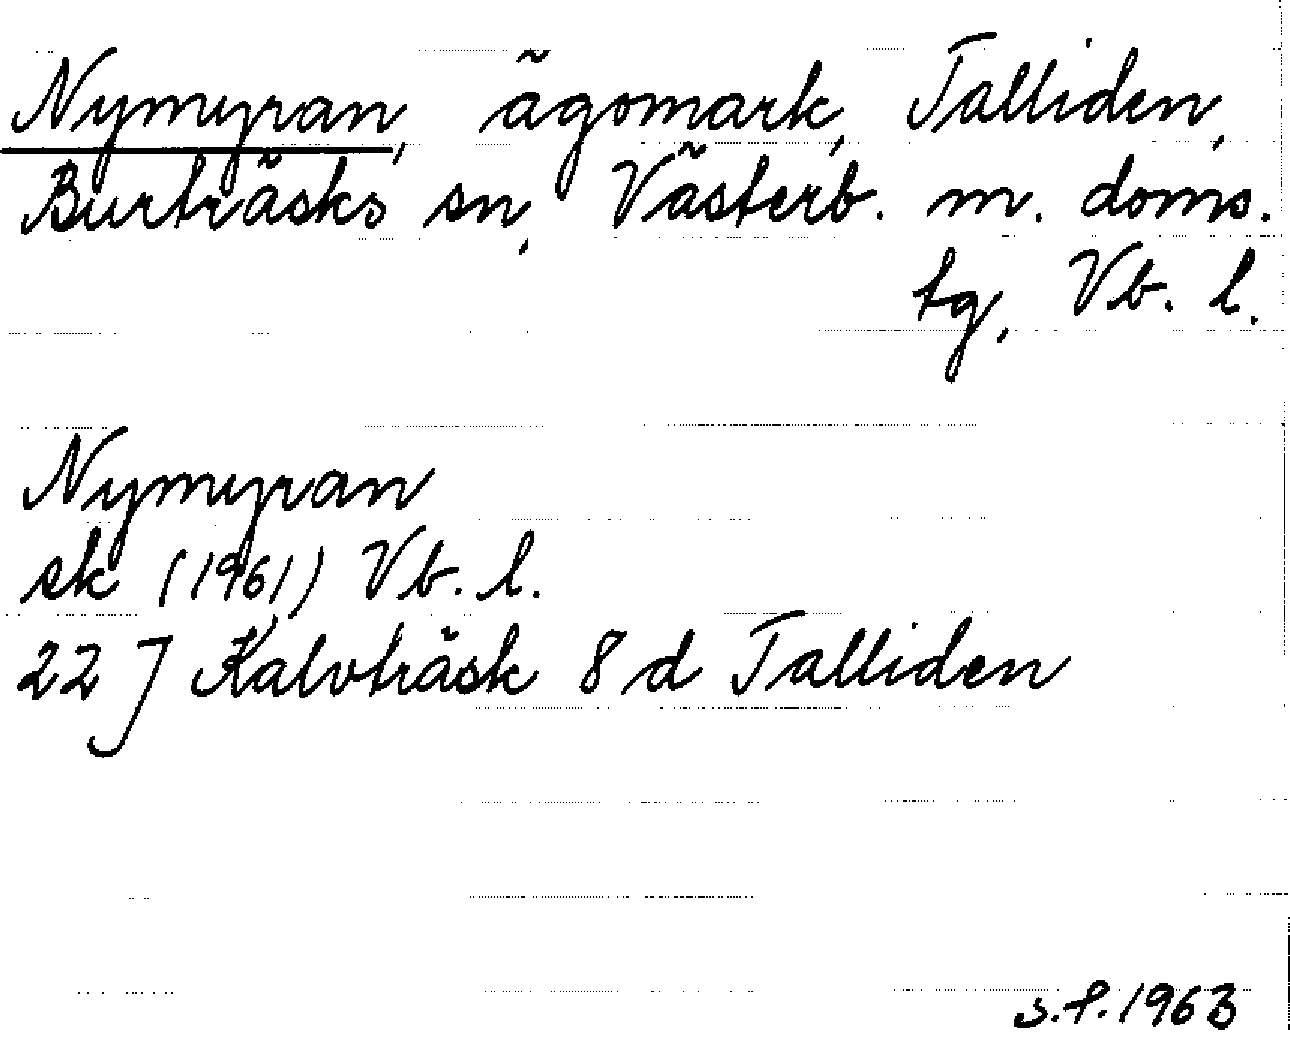 Nymyran, ägomark, Talliden,
Burträsks sn, Västerb. m. doms.
tg, Vb. l.
Nymyran
ek (1961) Vb. l.
22 J Kalvträsk 8 d Talliden
s.f. 1963